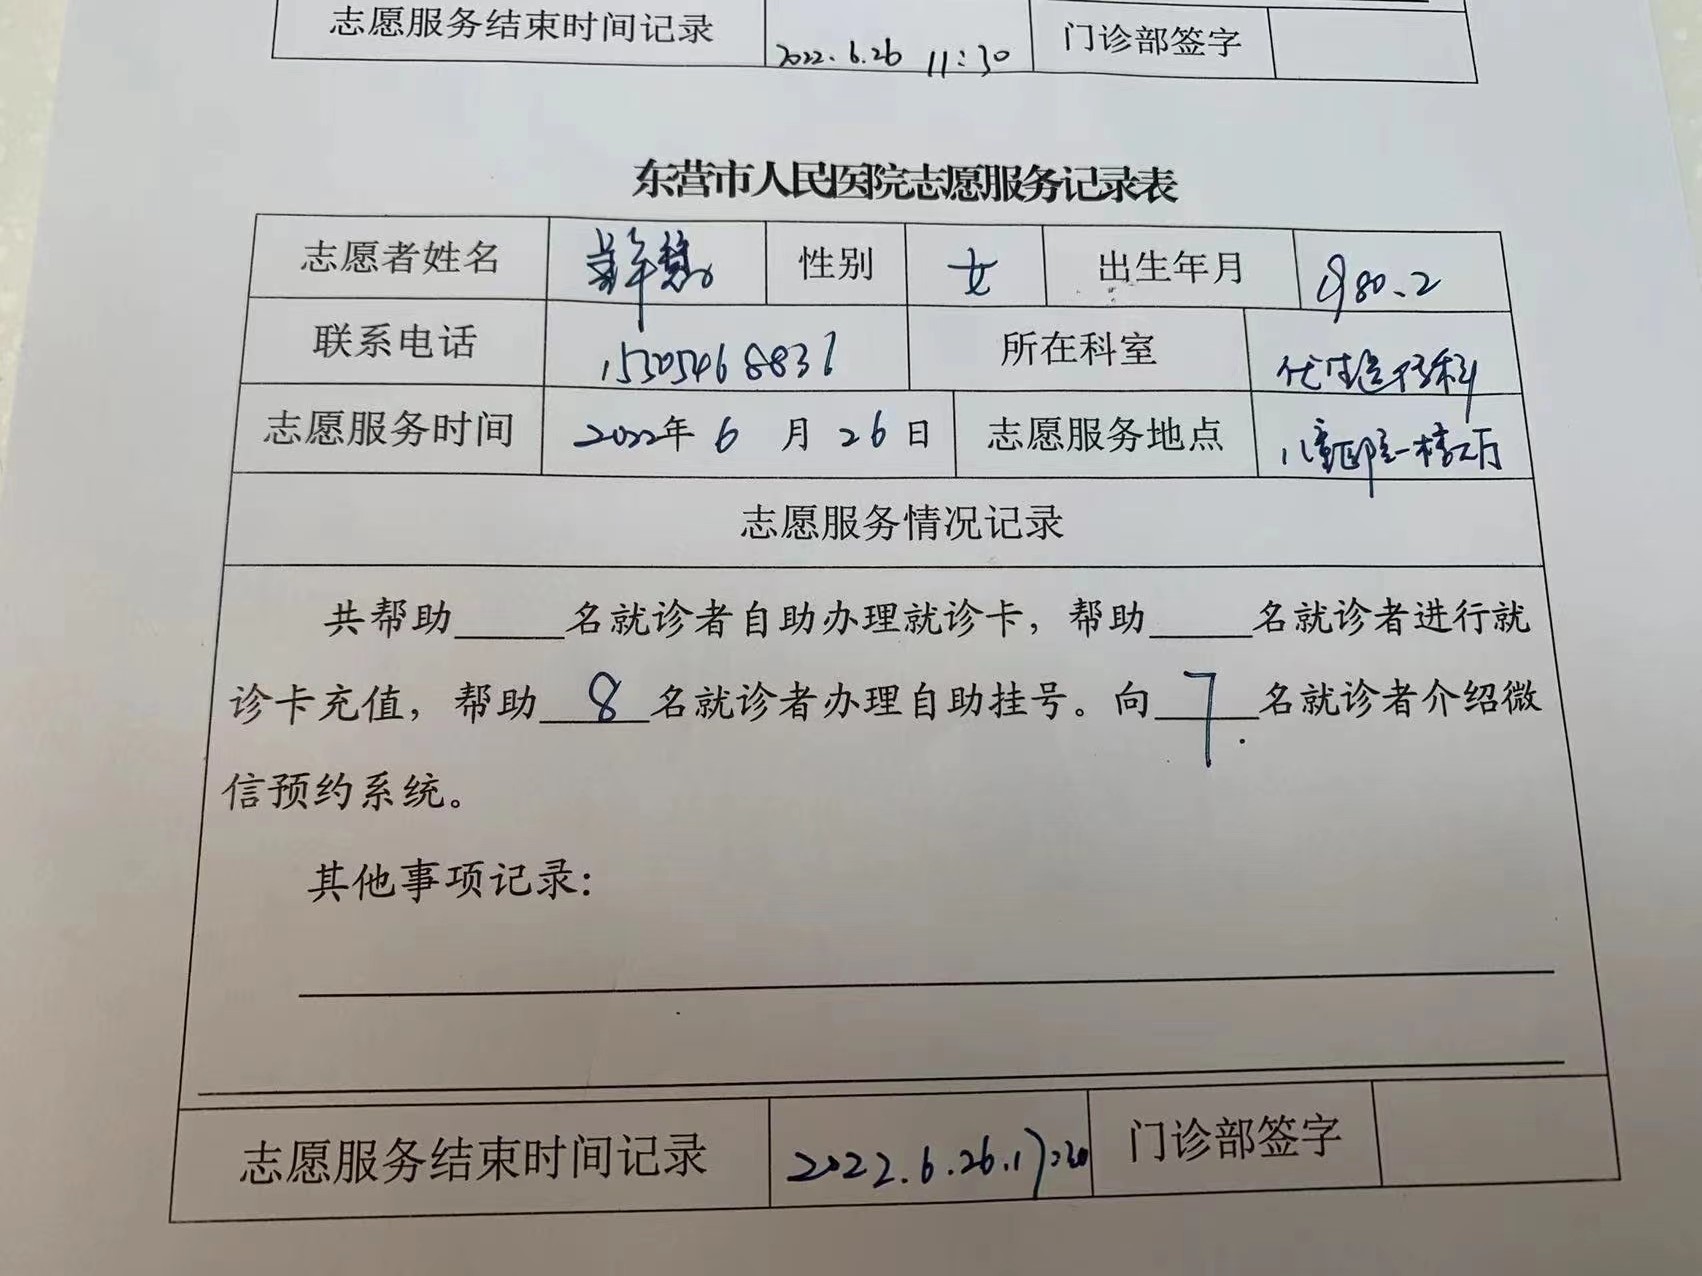 志愿服务结束时间记录 2022.6.26 11:30 门诊部签字
东营市人民医院志愿服务记录表
志愿者姓名 性别 女 出生年月 1980.2
联系电话 15505468831 所在科室 优生遗传科
志愿服务时间 2022年 6 月 26 日 志愿服务地点 儿童医院一楼大厅
志愿服务情况记录
共帮助____名就诊者自助办理就诊卡，帮助____名就诊者进行就
诊卡充值，帮助 8 名就诊者办理自助挂号。向 7 名就诊者介绍微
信预约系统。
其他事项记录：
志愿服务结束时间记录 2022.6.26.17:30 门诊部签字